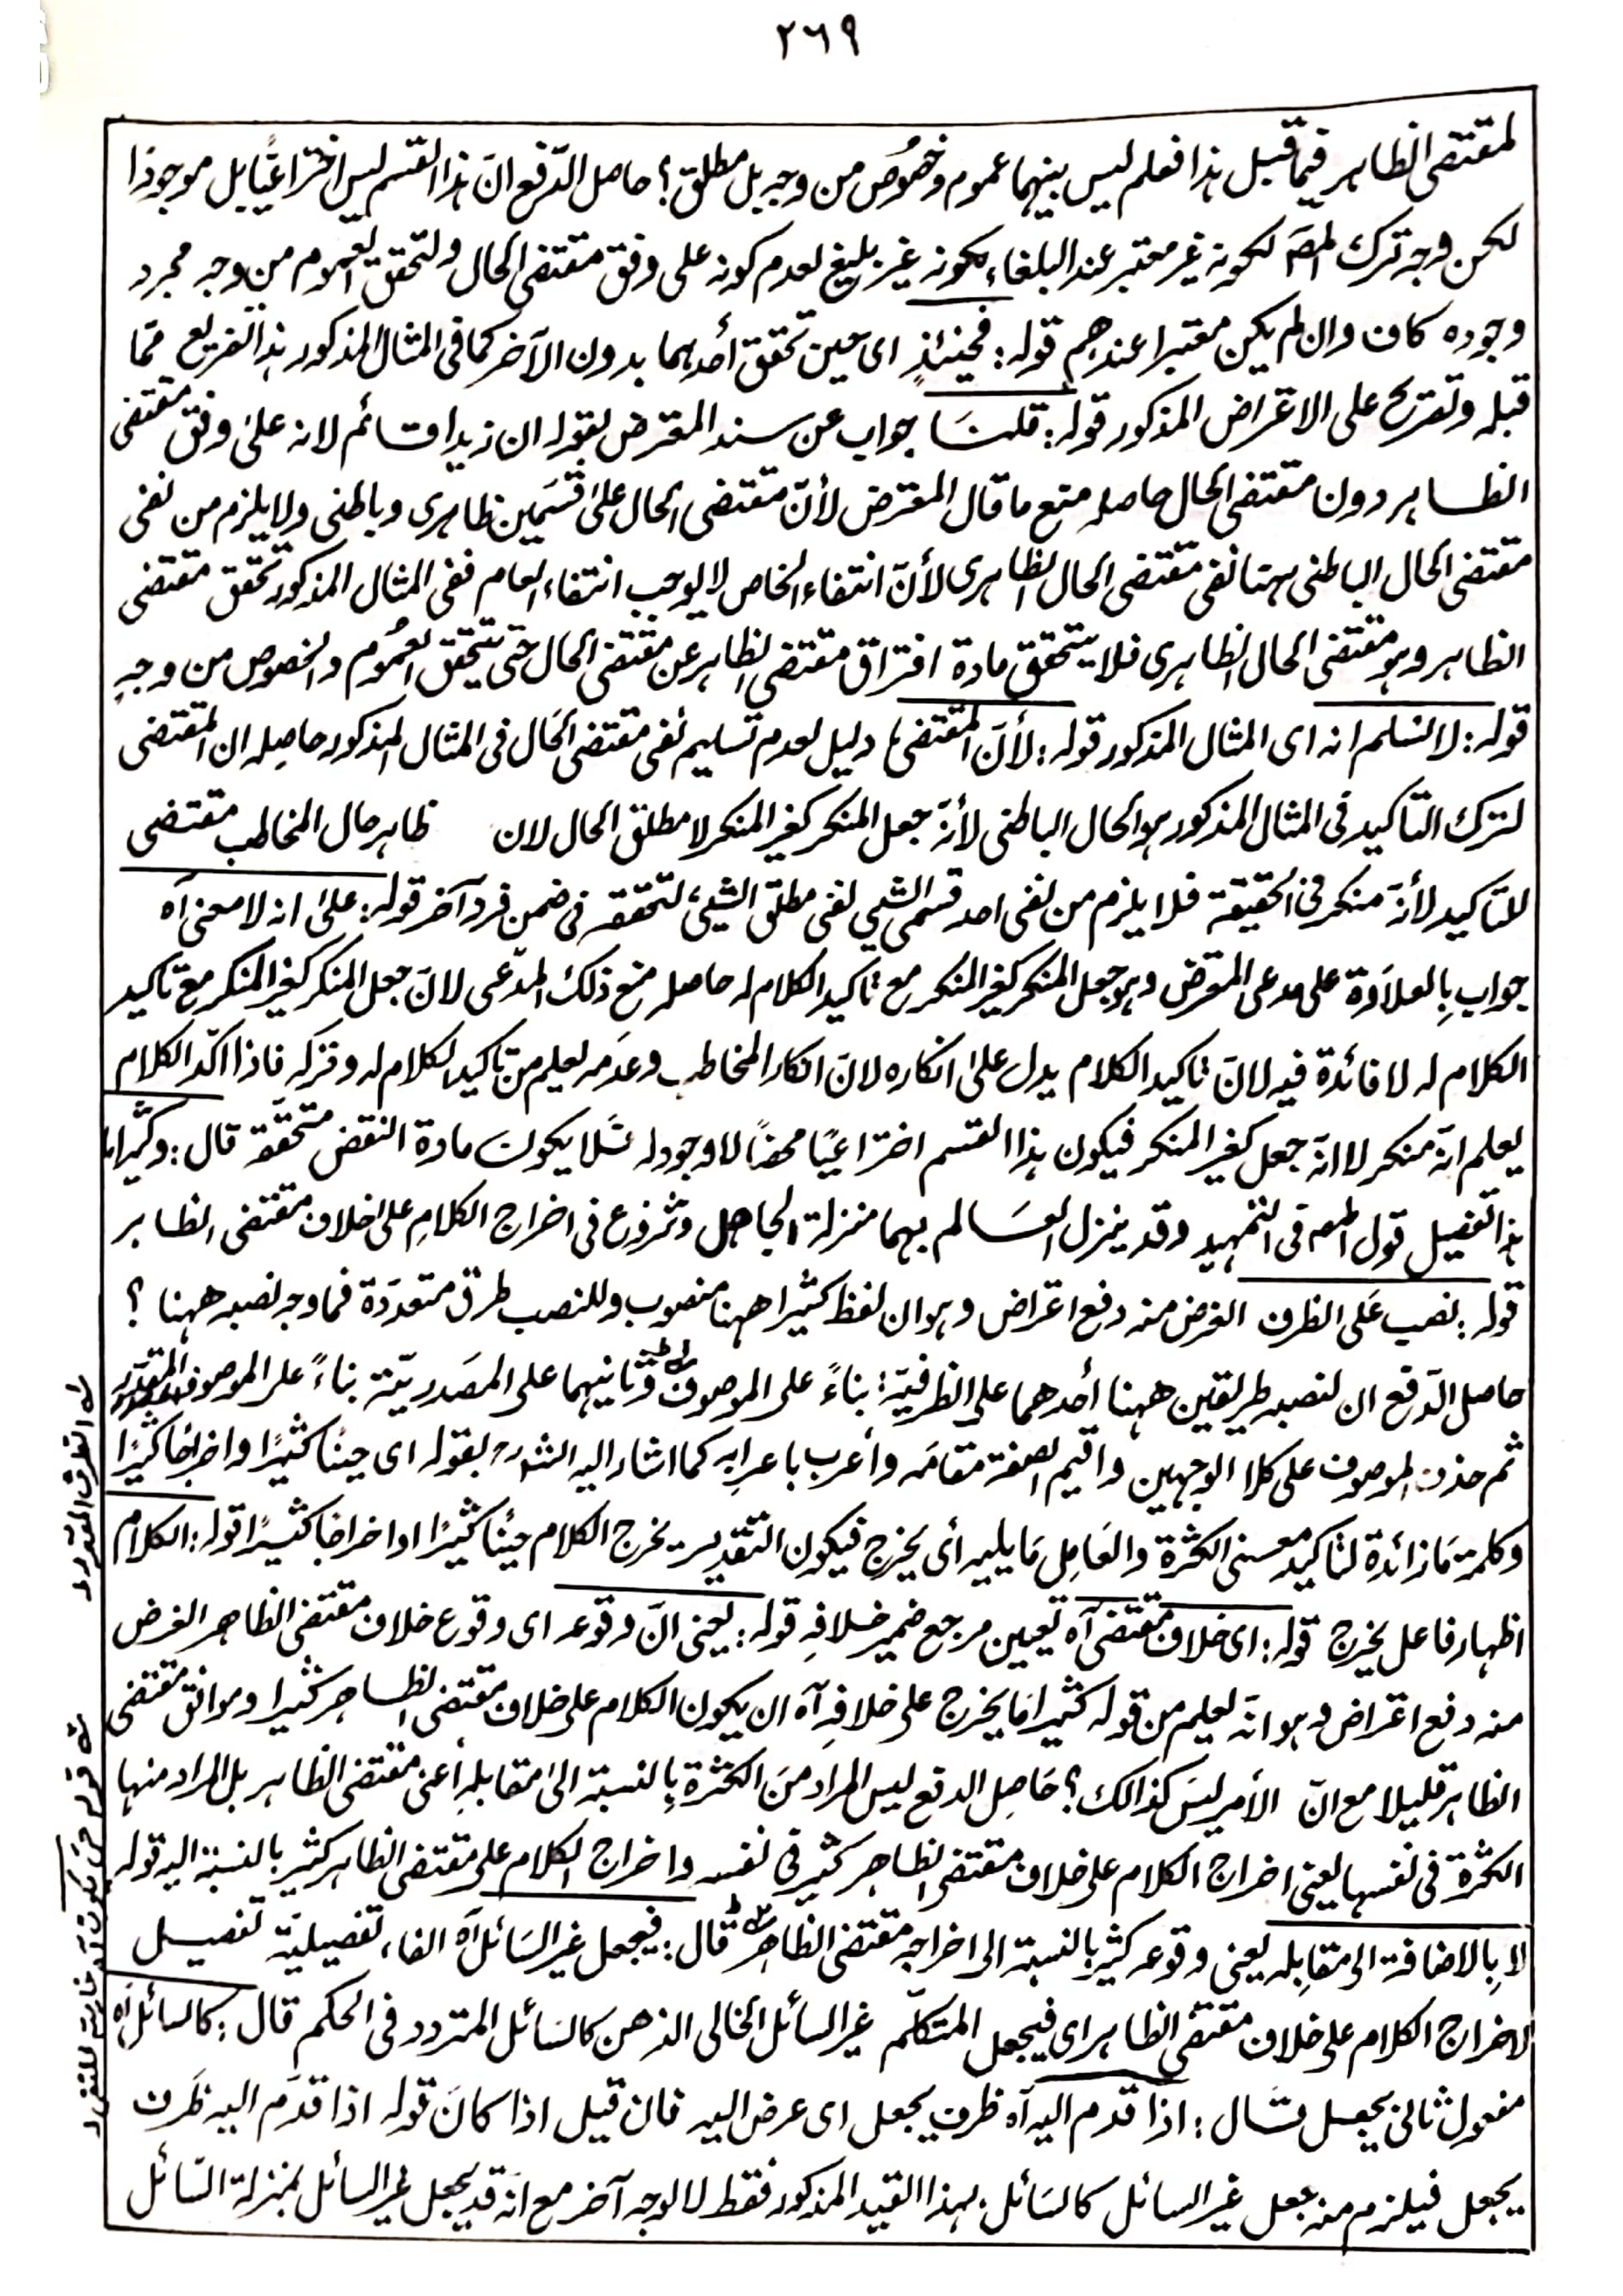 ٢٦٩
لمقتضی الظاهر فیما قبل هذا فعلم لیس بینهما عموم وخصُوصٌ من وجه بل مطلق؟ حاصل الدّفع انّ هذا القسم لیس اختراعیًّا بل موجودًا
لکن وجه ترك المصؔ لکونه غیر معتبر عند البلغاء لکونه غیر بلیغ لعدم کونه علی وفق مقتضی الحال ولتحقق العموم من وجه مجرد
وجوده کاف وان لم یکن معتبرا عندهم قوله: فحینئذٍ ای حین تحقق أحدهما بدون الآخر کما فی المثال المذکور هذا تفریع ممّا
قبله وتفریع علی الاعتراض المذکور قوله: قلنا جواب عن سند المعترض بقوله ان زیدا قائم لانه علیٰ وفق مقتضی
الظاهر دون مقتضی الحال حاصله منع ما قال المعترض لأنّ مقتضی الحال علیٰ قسمَین ظاهری وباطنی ولا یلزم من نفی
مقتضی الحال الباطنی ههنا نفی مقتضی الحال الظاهری لأنّ انتفاء الخاص لا یوجب انتفاء العام ففی المثال المذکور تحقق مقتضی
الظاهر وهو مقتضی الحال الظاهری فلا یتحقق مادة افتراق مقتضی الظاهر عن مقتضی الحال حتی یتحقق العمُوم والخصوص من وجهٍ
قوله: لا نسلم انه ای المثال المذکور قوله: لأنّ المقتضی، دلیل لعدم تسلیم نفی مقتضی الحال فی المثال المذکور حاصله ان المقتضی
لترك التاکید فی المثال المذکور هو الحال الباطنی لأنّه جعل المنکر کغیر المنکر لا مطلق الحال لان ظاهر حال المخاطب مقتضی
للتاکید لأنّه منکر فی الحقیقة فلا یلزم من نفی احد قسمی الشیئ نفی مطلق الشیئ لتحققه فی ضمن فرد آخر قوله: علیٰ انه لا معنی آه
جواب بِالعلاَوة علی مدعی المعترض وهو جعل المنکر کغیر المنکر مع تاکید الکلام له حاصله منع ذلك المدّعی لانّ جعل المنکر کغیر المنکر مع تاکید
الکلام له لا فائدة فیه لانّ تاکید الکلام یدل علیٰ انکاره لانّ انکار المخاطب وعدمه یعلم من تاکید الکلام له وترکه فاذا اکّد الکلام
یعلم انّه منکر لا انّه جعل کغیر المنکر فیکون هذا القسم اختراعیًا محضًا لا وجود له فلا یکون مادة النقض متحقّقة قال: وکثیراما
هذا تفصیل قول المصؔ فی التمهید وقد ینزل العالم بهما منزلة الجاهل وشروع فی اخراج الکلامِ علی خلاف مقتضی الظاهر
قوله: نصب عَلی الظرف الغرض منه دفع اعتراض وهو ان لفظ کثیرا ههنا منصوب وللنصب طرق متعدّدة فما وجه نصبه ههنا؟
حاصل الدّفع ان لنصبه طریقین ههنا أحدهما علی الظرفیّة: بناءً علی الموصوف وثانیهما علی المصَدریّة بناءً علی الموصوف المقدّر
ثم حذف الموصوف علی کلا الوجهین واقیم الصفة مقامَه وأعرب باعرابه کما اشار الیه الشهؔ بقوله ای حینًا کثیرًا واخراجًا کثیرًا
وکلمة مَا زائدة لتاکید معنی الکثرة والعَامِل مَا یلیه أی یخرج فیکون التقدیر یخرج الکلام حینًا کثیرًا او اخراجًا کثیرًا قوله: الکلام
اظهار فاعل یخرج قوله: ای خلاف مقتضی آه تعیین مرجع ضمیر خلافهِ قوله: یعنی انّ وقوعه ای وقوع خلاف مقتضی الظاهر الغرض
منه دفع اعتراض وهو انّه یعلم من قوله کثیرا مَا یخرج علی خلافِه آه ان یکون الکلام علی خلاف مقتضی الظاهر کثیرا وموافق مقتضی
الظاهر قلیلا مع انّ الأمر لیسَ کذالك؟ حَاصِل الدفع لیس المراد منَ الکثرة بِالنسبة الیٰ مقابلهٖ أعنی مقتضی الظاهر بل المراد منها
الکثرة فی نفسها یعنی اخراج الکلام علی خلاف مقتضی الظاهر کثیر فی نفسه واخراج الکلام علی مقتضی الظاهر کثیر بالنسبة الیه قوله
لا بِالاضافة الی مقابِله یعنی وقوعه کثیر بالنسبة الی اخراجه مقتضی الظاهر قال: فیجعل غیر السّائل آه الفاء تفصیلیّة تفصیل
لاخراج الکلام علی خلاف مقتضی الظاهر ای فیجعل المتکلّم غیر السائل الخالی الذهن کالسَائل المتردد فی الحکم قال: کالسائل آه
مفعول ثانی یجعل قال: اذا قدم الیه آه ظرف یجعل ای عرض الیه فان قیل اذا کانَ قوله اذا قدّم الیه ظَرف
یجعل فیلزم منه جعل غیر السائل کالسَائل بهذا القید المذکور فقط لا لوجه آخر مع انّه قد یجعل غیر السائل بمنزلة السّائل
له الظرف المقدر